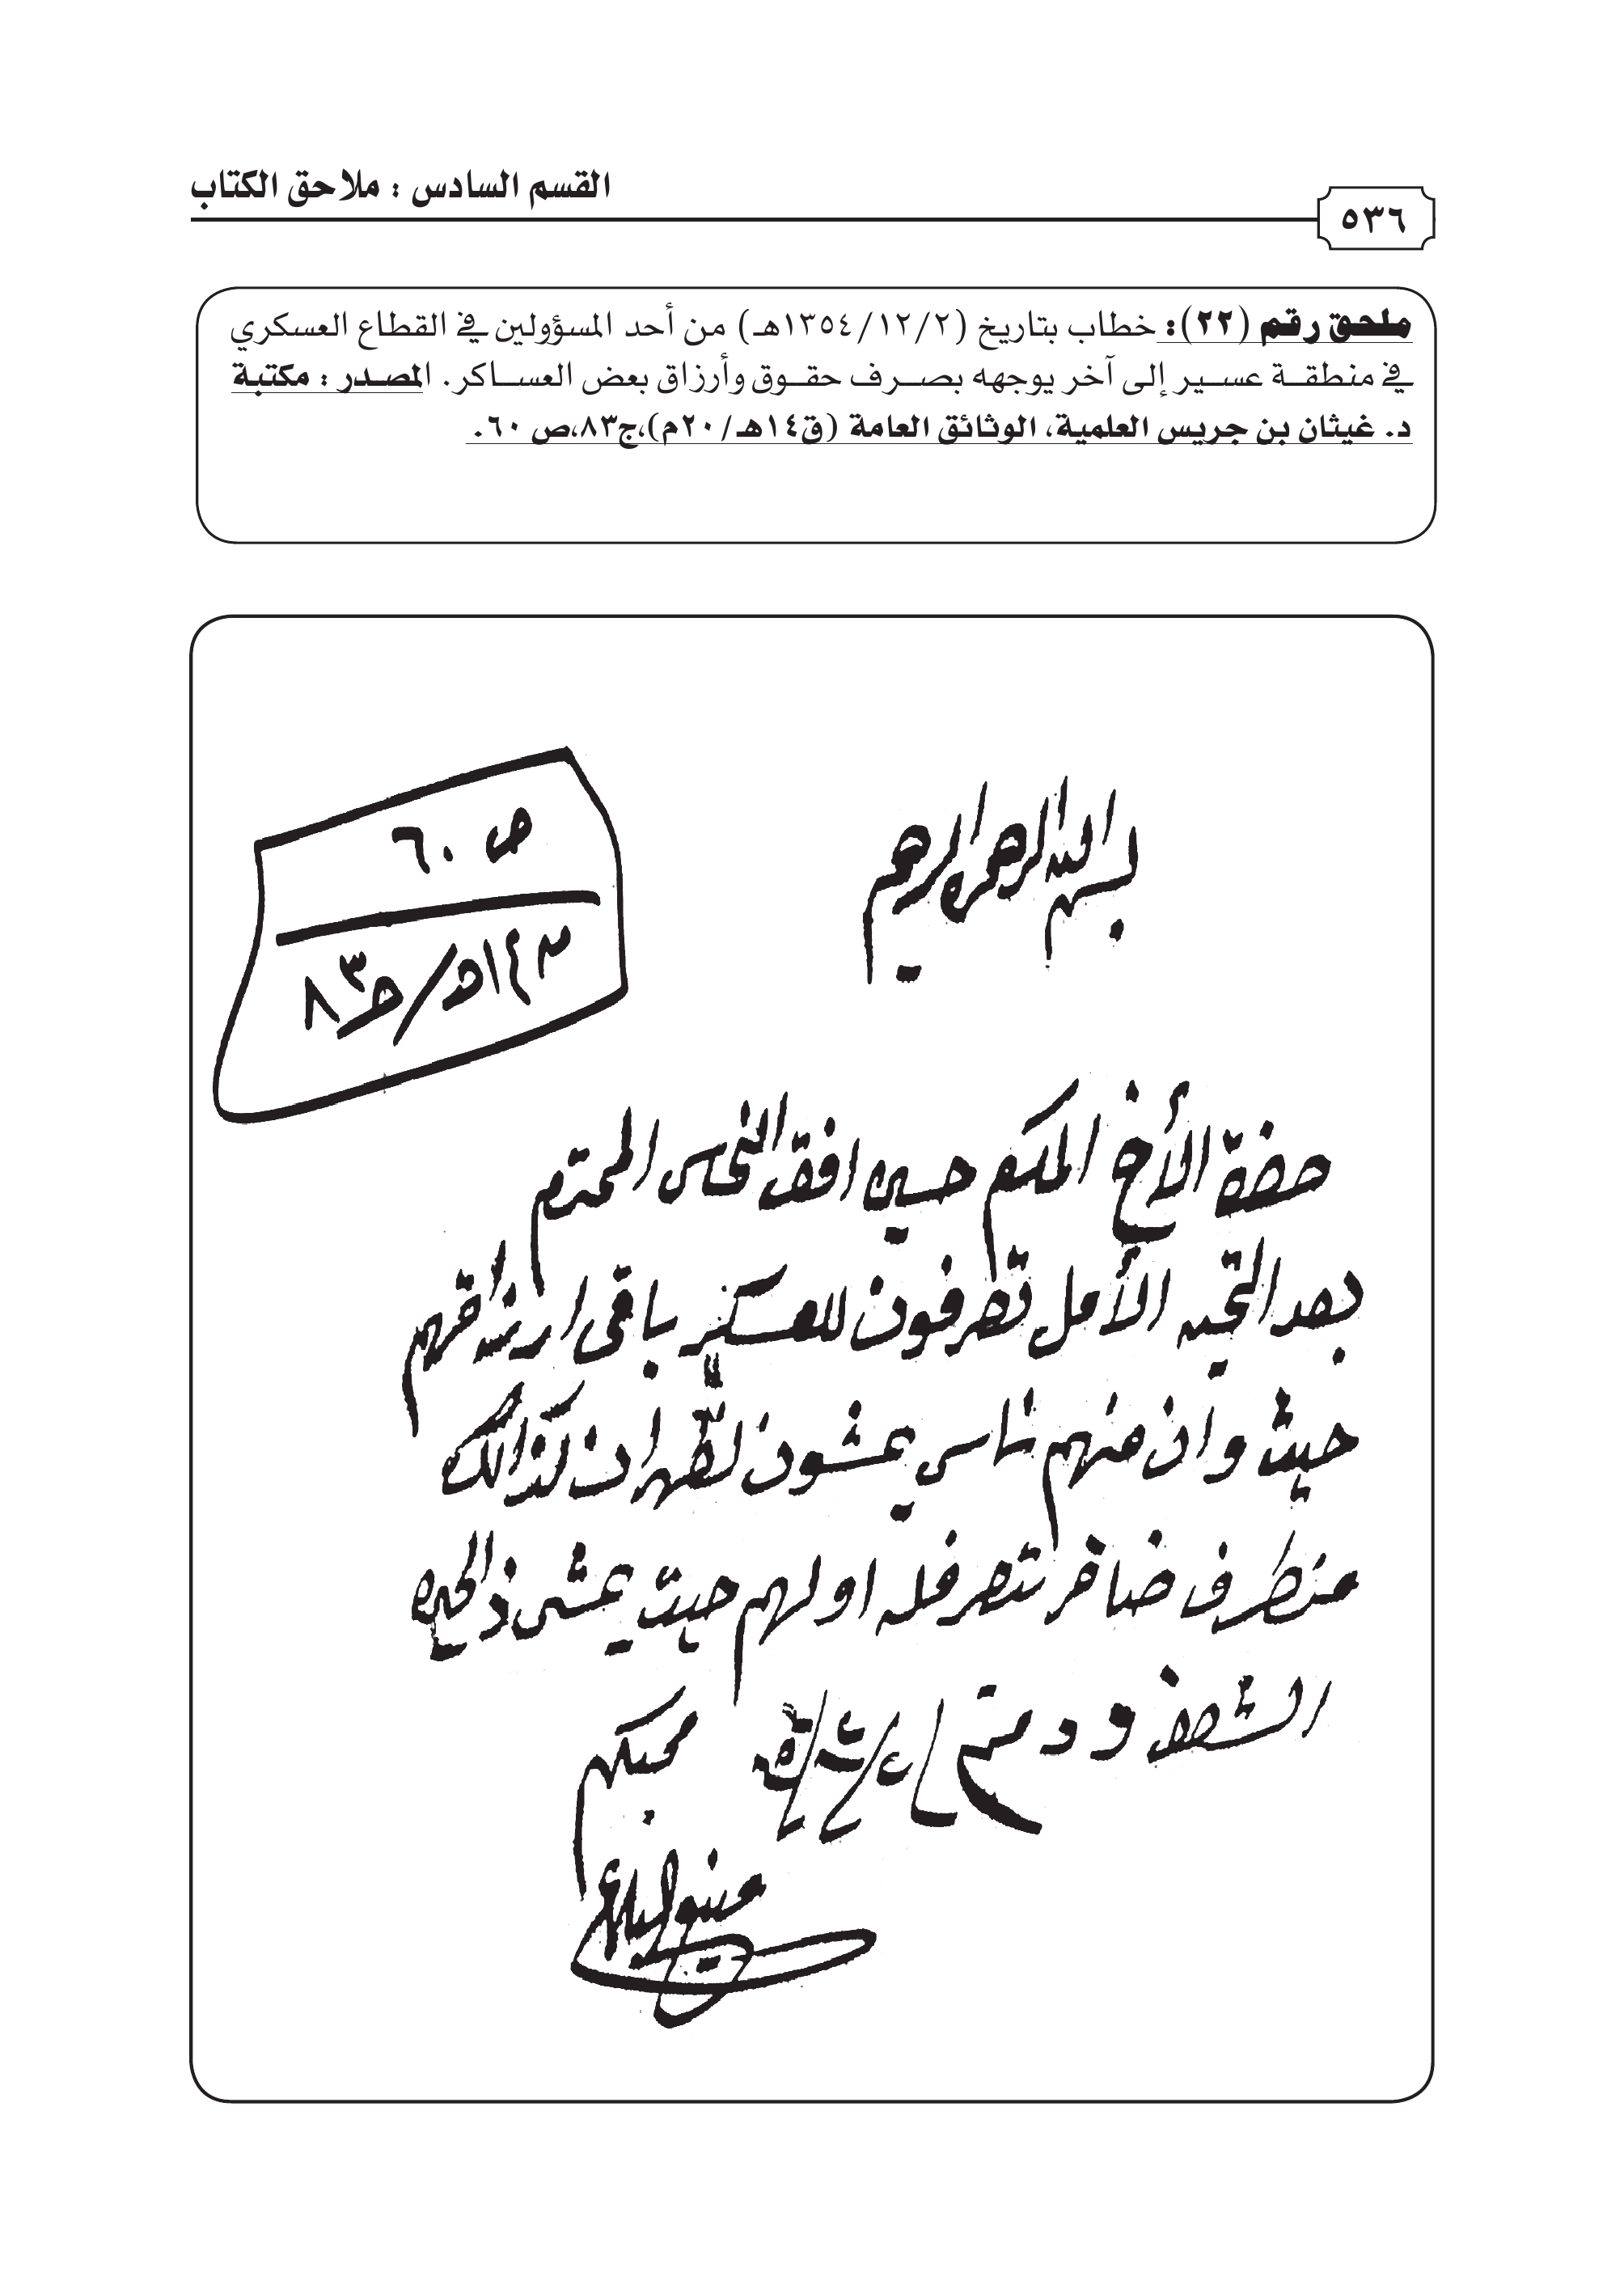 القسم السادس : ملاحق الكتاب
٥٣٦
ملحق رقم (٢٢): خطاب بتاريخ (١٣٥٤/١٢/٢هـ) من أحد المسؤولين في القطاع العسكري
في منطقة عسير إلى آخر يوجهه بصرف حقوق وأرزاق بعض العساكر. المصدر : مكتبة
د. غيثان بن جريس العلمية، الوثائق العامة (ق١٤هـ/٢٠م)،ج٨٣،ص ٦٠.
ص ٦٠
بسم الله الرحمن الرحيم
حضرة الأخ المكرم حسين المحترم
بعد التحيه الأمل تصرفون للعسكر باقي ارزاقهم
حيث وان منهم ناس يمشون لظهران كذالك
تصرفله اولهم حيث يمشي
ودمتم
محبكم